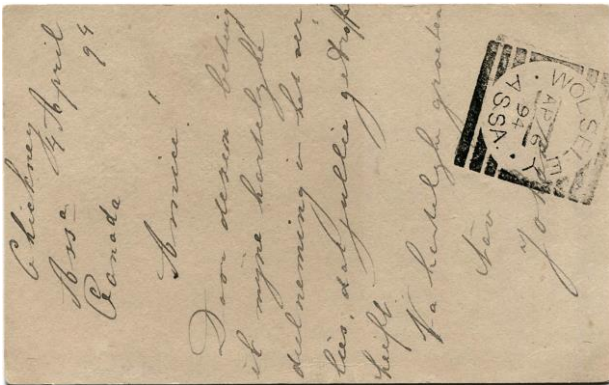 Chickney
Assa 4 April
Canada 94
Amice!
Door dezen betuig
ik mijne hartelyke
deelneming in het ver
lies, dat jullie getroff
heeft.
Na hartelyke groeten
WOLSELEY
AP 6
94
ASSA.